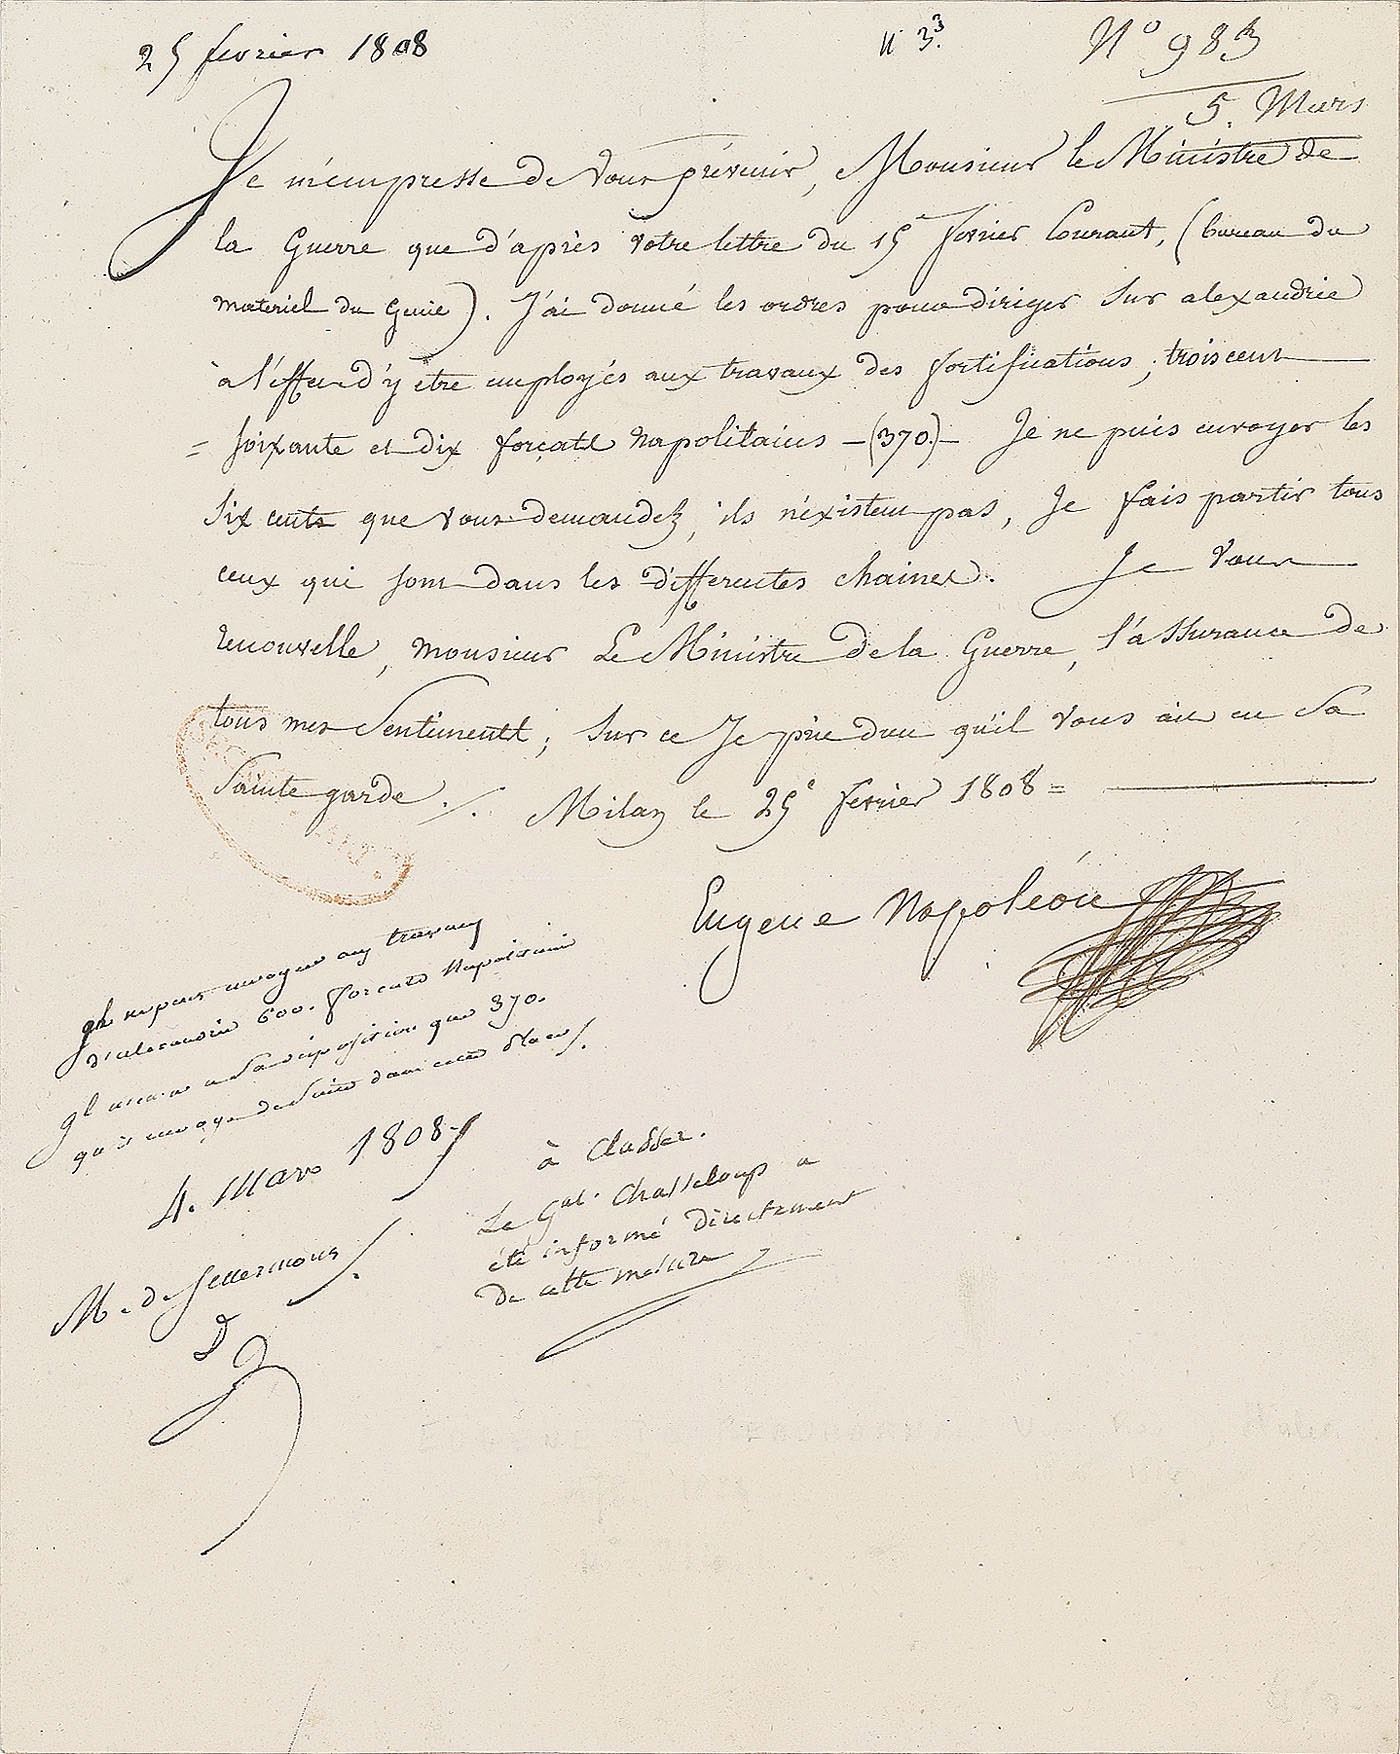 25 fevrier 1808
N 33.
N° 983
5. Mars
Je m'empresse de Vous prévenir, Monsieur le Ministre de
la Guerre que d'après votre lettre du 15 fevrier Courant, (bureau du
materiel du Genie). J'ai donné les ordres pour diriger Sur alexandrie
à l'effet d'y etre employés aux travaux des fortifications; trois cent
= Soixante et dix forçats Napolitains -(370.)- Je ne puis envoyer les
Six cents que Vous demandez, ils n'existent pas, Je fais partir tous
ceux qui sont dans les differentes chaines. Je Vous
renouvelle, monsieur Le Ministre de la Guerre, l'assurance de
tous mes Sentiments; Sur ce Je prie dieu qu'il Vous ait en Sa
Sainte garde ./. Milan le 25e fevrier 1808 =
Eugene Napoléon
Il ne peut envoyer aux travaux
d'alexandrie 600. forcats Napolitains
Il n'en a a sa disposition que 370.
qu'il envoye de Suite dans cette Place
4. Mars 1808
M. de
D
à Classer.
Le Gal. Chasseloup a
été informé directement
de cette mesure